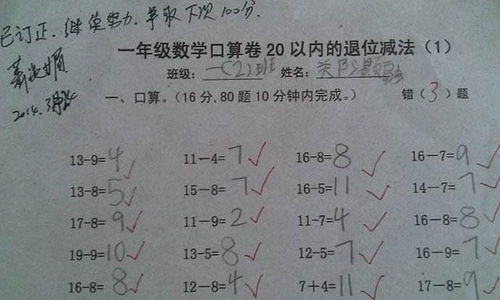 已订正.继续努力.争取下次100分.
一年级数学口算卷20以内的退位减法（1）
班级：一(2)班 姓名：
一、口算。（16分,80题10分钟内完成。） 错（3）题
13-9=4 11-4=7 16-8=8 16-7=9
13-8=5 15-8=7 16-5=11 14-7=7
17-8=9 11-9=2 11-7=4 16-8=8
19-9=10 13-5=8 12-5=7 16-9=7
16-8=8 12-8=4 7+4=11 17-8=9